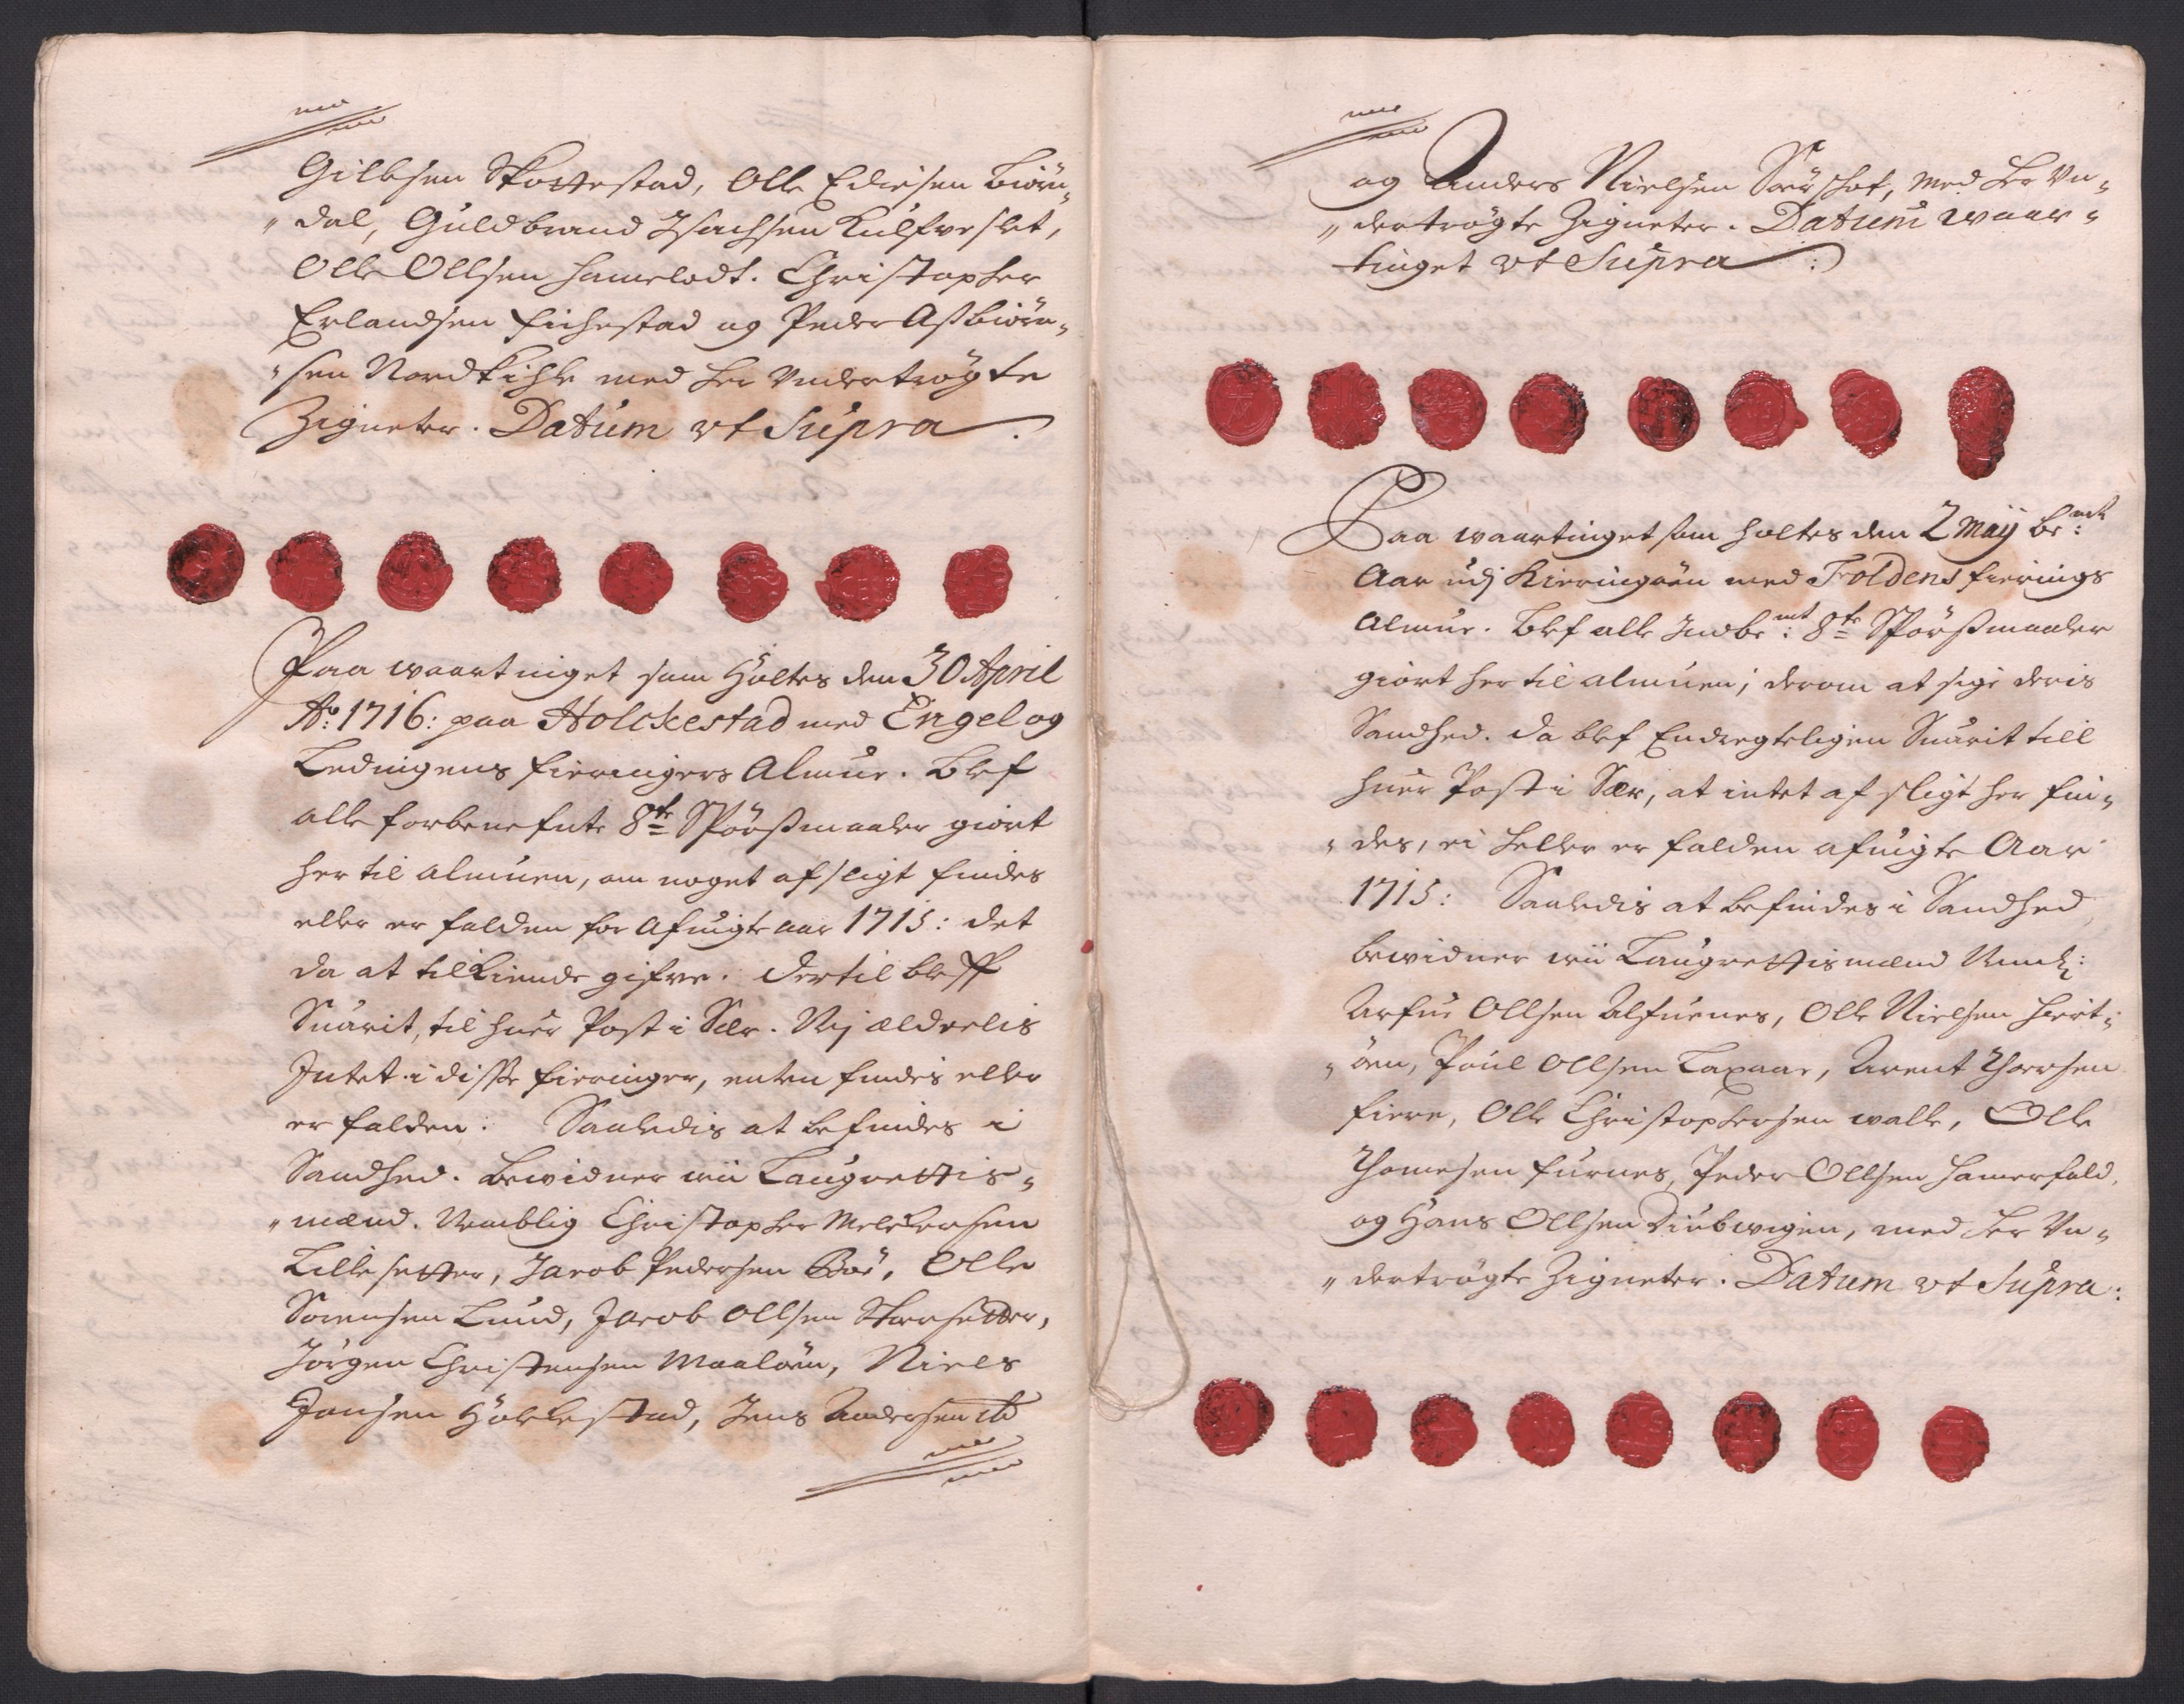 Gilbsen Skottestad, Olle Edisen Biörn„
„dal, Guldbrand Isachsen Kulfveslet,
Olle Ollsen Hamelodt. Christopher
Erlandsen Fichestad og Peder Assbiörn„
„sen Nordkihle med her undertrögte
Zigneter. Datum ut Supra.
Paa waartinget som Holtes den 30 April
Ao: 1716: paa Holckestad med Engel og
Ledingens fieringers Almue. Blef
alle forbenefnte 8te Spörssmaaler giort
her til almuen, om noget af sligt findes
eller er falden for Afvigte aar 1715: det
da at tilkiende gifve. Dertil bleff
Suarit, til huer Post i Sær. Nej aldeelis
Intet i disse fieringer, enten findes eller
er falden: Saaledis at befindes i
Sandhed. bewidner wii Laugrettis„
„mænd. Nemblig Christopher Melchersen
Lillesetter, Jacob Pedersen Böe, Olle
Sörensen Lund, Jacob Ollsen Storsetter,
Jörgen Christensen Maalöen, Niels
Jonsen Holkestad, Jens Andersen ibd
og Anders Nielsen Sörschot, med her Un„
„dertrögte Zigneter. Datum waar„
tinget ut Supra:
Paa waartinget som holtes den 2 Maij bemte:
Aar udj Kieringöen med Foldens fierings
Almue. Blef alle Indbemt: 8te Spörssmaaler
giort her til almuen, derom at sige deris
Sandhed. da blef Endregteligen Suarit till
huer Post i Sær, at intet af sligt her fin„
„des, ei heller er falden afvigte Aar
1715: Saaledis at befindes i Sandhed
bewidner wii Laugrettismænd Nembl:
Arfue Ollsen Alfuenes, Olle Nielsen Hiert„
„öen, Poul Ollsen Laxaae, Arent Thorsen
Fiere, Olle Christophersen walle, Olle
Thomesen Furnes, Peder Ollsen Hamerfald,
og Hans Ollsen Diubwigen, med her Un„
„dertrögte Zigneter. Datum ut Supra: